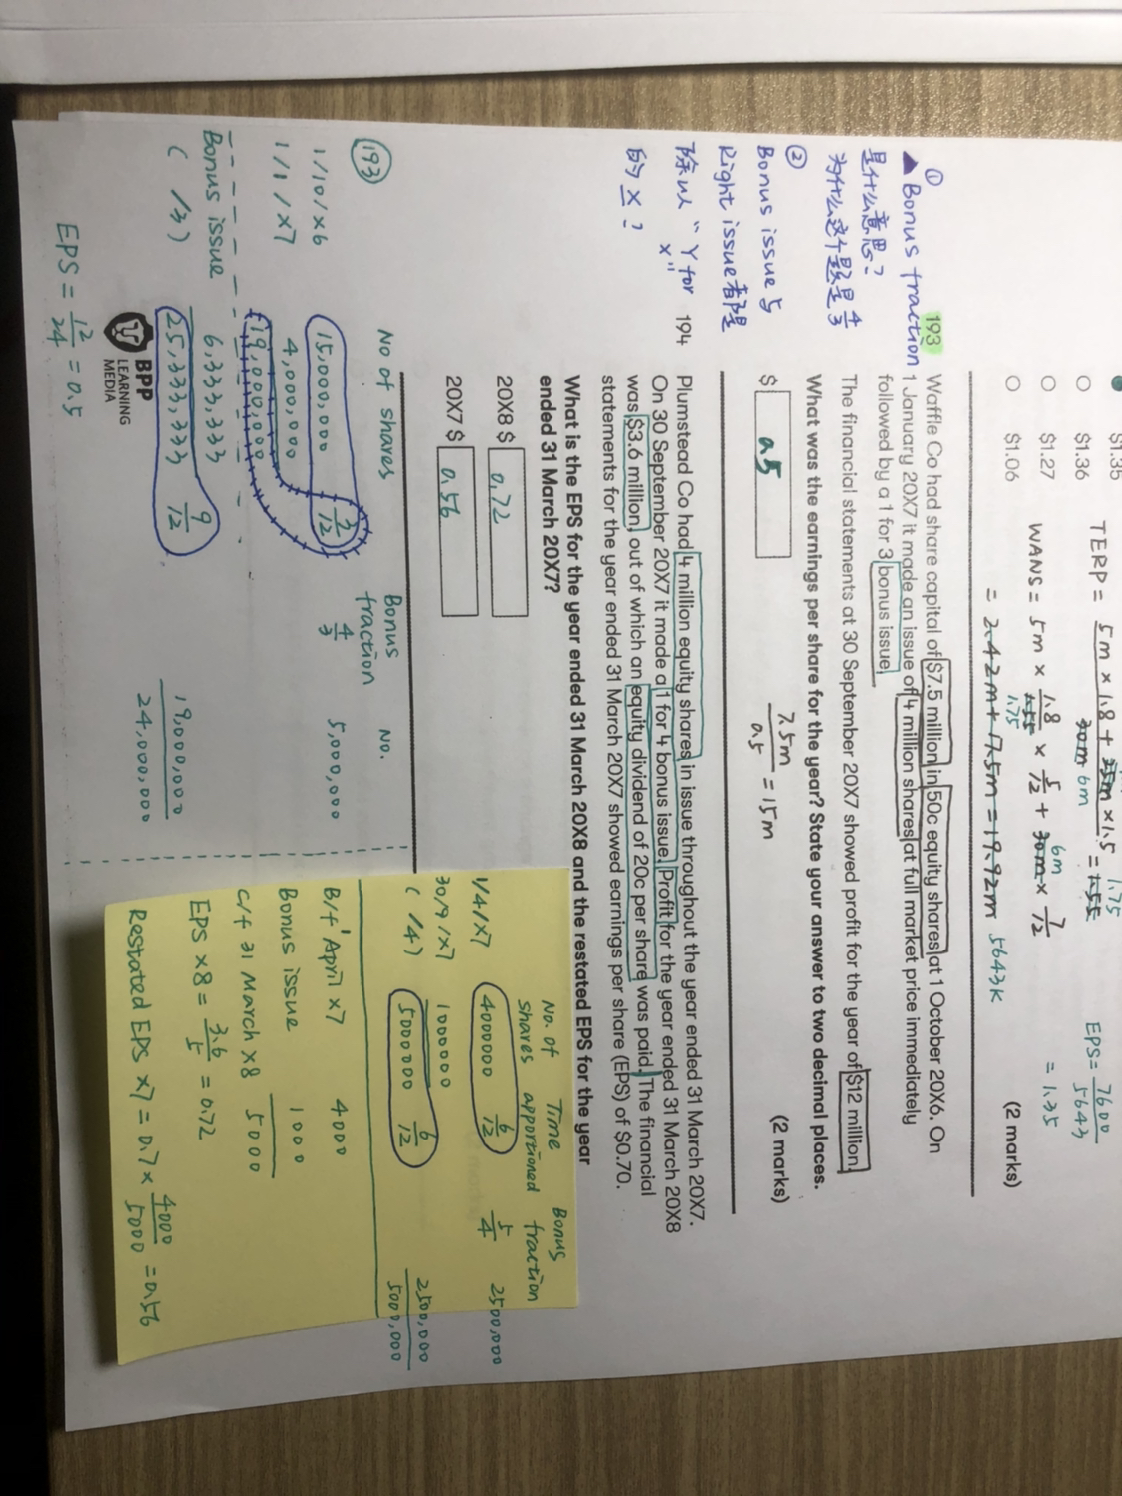 $1.35
$1.36
$1.27
$1.06
TERP = 5m × 1.8 + 25m × 1.5 = 1.55
30m 6m
1.75
WANS = 5m × 1.8 × 5/12 + 30m × 7/12
1.55
1.75
6m
= 2.42m + 17.5m = 19.92m 5643K
EPS = 7600
5643
= 1.35
(2 marks)
193 Waffle Co had share capital of $7.5 million in 50c equity shares at 1 October 20X6. On
1 January 20X7 it made an issue of 4 million shares at full market price immediately
followed by a 1 for 3 bonus issue.
The financial statements at 30 September 20X7 showed profit for the year of $12 million.
What was the earnings per share for the year? State your answer to two decimal places.
$ 0.5
(2 marks)
7.5m
0.5 = 15m
①
▲ Bonus fraction
是什么意思?
为什么这个题是 4/3
②
Bonus issue 与
Right issue都是
除以 "Y for
X"
的 X ?
194 Plumstead Co had 4 million equity shares in issue throughout the year ended 31 March 20X7.
On 30 September 20X7 it made a 1 for 4 bonus issue. Profit for the year ended 31 March 20X8
was $3.6 million, out of which an equity dividend of 20c per share was paid. The financial
statements for the year ended 31 March 20X7 showed earnings per share (EPS) of $0.70.
What is the EPS for the year ended 31 March 20X8 and the restated EPS for the year
ended 31 March 20X7?
20X8 $ 0.72
20X7 $ 0.56
193
No of shares
Bonus
fraction
No.
1/10/X6 15,000,000 3/12 4/3 5,000,000
1/1/X7 4,000,000
19,000,000
Bonus issue 6,333,333
( /3) 25,333,333 9/12 19,000,000
24,000,000
EPS = 12/24 = 0.5
BPP
LEARNING
MEDIA
No. of Time Bonus
shares apportioned fraction
1/4/X7 4000000 6/12 5/4 2500,000
30/9/X7 1000000
( /4) 5000000 6/12 2,500,000
5000,000
B/f 1 April X7 4000
Bonus issue 1000
C/f 31 March X8 5000
EPS X8 = 3.6/5 = 0.72
Restated EPS X7 = 0.7 × 4000/5000 = 0.56